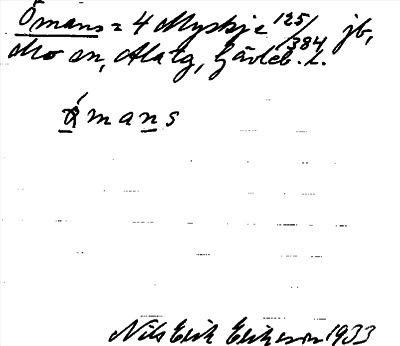 Ömans = 4 Myskje 125/384 jb,
Mo sn, Ala tg, Gävleb. l.
ömans
Nils Erik Eriksson 1933